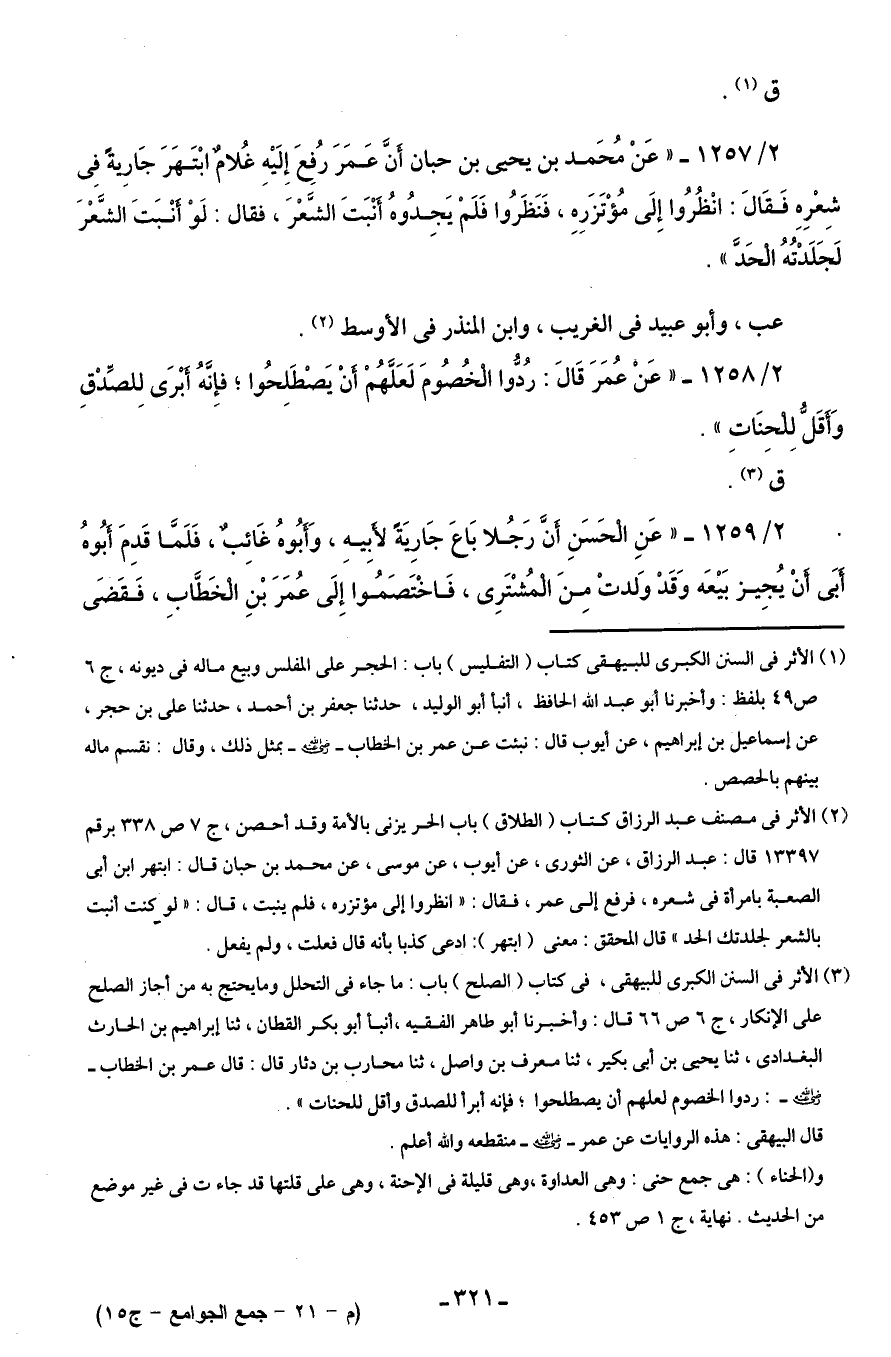 ق (١) .
٢/ ١٢٥٧ ـ « عَنْ مُحَمَد بن يحيى بن حبان أَنَّ عَـمَرَ رُفِعَ إِلَيْهِ غُلامٌ ابْتَـهَرَ جَارِيةً فِى
شِعْرِهِ فَـقَالَ : انْظُرُوا إِلَى مُؤْتَزَرِه ، فَنَظَرُوا فَلَمْ يَجِـدُوهُ أَنْبَتَ الشَّعْرَ ، فقال : لَوْ أَنْـبَتَ الشَّعْرَ
لَجَلَدْتُهُ الْحَدَّ » .
عب ، وأبو عبيد فى الغريب ، وابن المنذر فى الأوسط (٢) .
٢/ ١٢٥٨ ـ « عَنْ عُمَرَ قَالَ : رُدُّوا الْخُصُومَ لَعَلَّهُمْ أَنْ يَصْطَلِحُوا ؛ فإِنَّهُ أَبْرَى لِلصِّدْقِ
وَأَقَلُّ لِلْحِنَاتِ » .
ق (٣) .
٢/ ١٢٥٩ ـ « عَنِ الْحَسَنِ أَنَّ رَجُـلا بَاعَ جَارِيَةً لأَبِيـهِ ، وَأَبُوهُ غَائِبٌ ، فَلَمَّـا قَدِمَ أَبُوهُ
أَبَى أَنْ يُجِيـز بَيْعَه وَقَدْ وَلَدتْ مِـنَ الْمُشْتَرِى ، فَـاخْتَصَمُـوا إِلَى عُمَرَ بْنِ الْخَطَّابِ ، فَـقَضَى
(١) الأثر فى السنن الكبرى للبيهـقى كتـاب ( التفـليس ) باب : الحجـر على المفلس وبيع مـاله فى ديونه ، ج ٦
ص٤٩ بلفظ : وأخبرنا أبو عبد الله الحافظ ، أنبأ أبو الوليد ، حدثنا جعفر بن أحمـد ، حدثنا على بن حجر ،
عن إسماعيل بن إبراهيم ، عن أيوب قال : نبئت عـن عمر بن الخطاب ـ ﵁ ـ بمثل ذلك ، وقال : نقسم ماله
بينهم بالحصص .
(٢) الأثر فى مـصنف عبـد الرزاق كـتـاب ( الطلاق ) باب الحـر يزنى بالأمة وقـد أحـصن ، ج ٧ ص ٣٣٨ برقم
١٣٣٩٧ قال : عبـد الرزاق ، عن الثورى ، عن أيوب ، عن موسى ، عن محمـد بن حبان قـال : ابتهر ابن أبى
الصعبـة بامرأة فى شـعره ، فرفع إلـى عمر ، فـقال : « انظروا إلى مؤتزره ، فلم ينبت ، قـال : « لو كنت أنبت
بالشعر لجلدتك الحد » قال المحقق : معنى ( ابتهر ): ادعى كذبا بأنه قال فعلت ، ولم يفعل .
(٣) الأثر فى السنن الكبرى للبيهقى ، فى كتاب ( الصلح ) باب : ما جاء فى التحلل ومايحتج به من أجاز الصلح
على الإنكار ، ج ٦ ص ٦٦ قـال : وأخـبـرنا أبو طاهر الفـقـيه ،أنبـأ أبو بكـر القطان ، ثنا إبراهيم بن الحـارث
البغـدادى ، ثنا يحيى بن أبى بكير ، ثنا معـرف بن واصل ، ثنا محـارب بن دثار قال : قال عـمر بن الخطاب ـ
﵁ ـ : ردوا الخصوم لعلهم أن يصطلحوا ؛ فإنه أبرأ للصدق وأقل للحنات » .
قال البيهقى : هذه الروايات عن عمر ـ ﵁ ـ منقطعه والله أعلم .
و(الحناء ) : هى جمع حنى : وهى العداوة ،وهى قليلة فى الإحنة ، وهى على قلتها قد جاء ت فى غير موضع
من الحديث . نهاية ، ج ١ ص ٤٥٣ .
ـ ٣٢١ ـ
(م - ٢١ - جمع الجوامع - ج١٥)